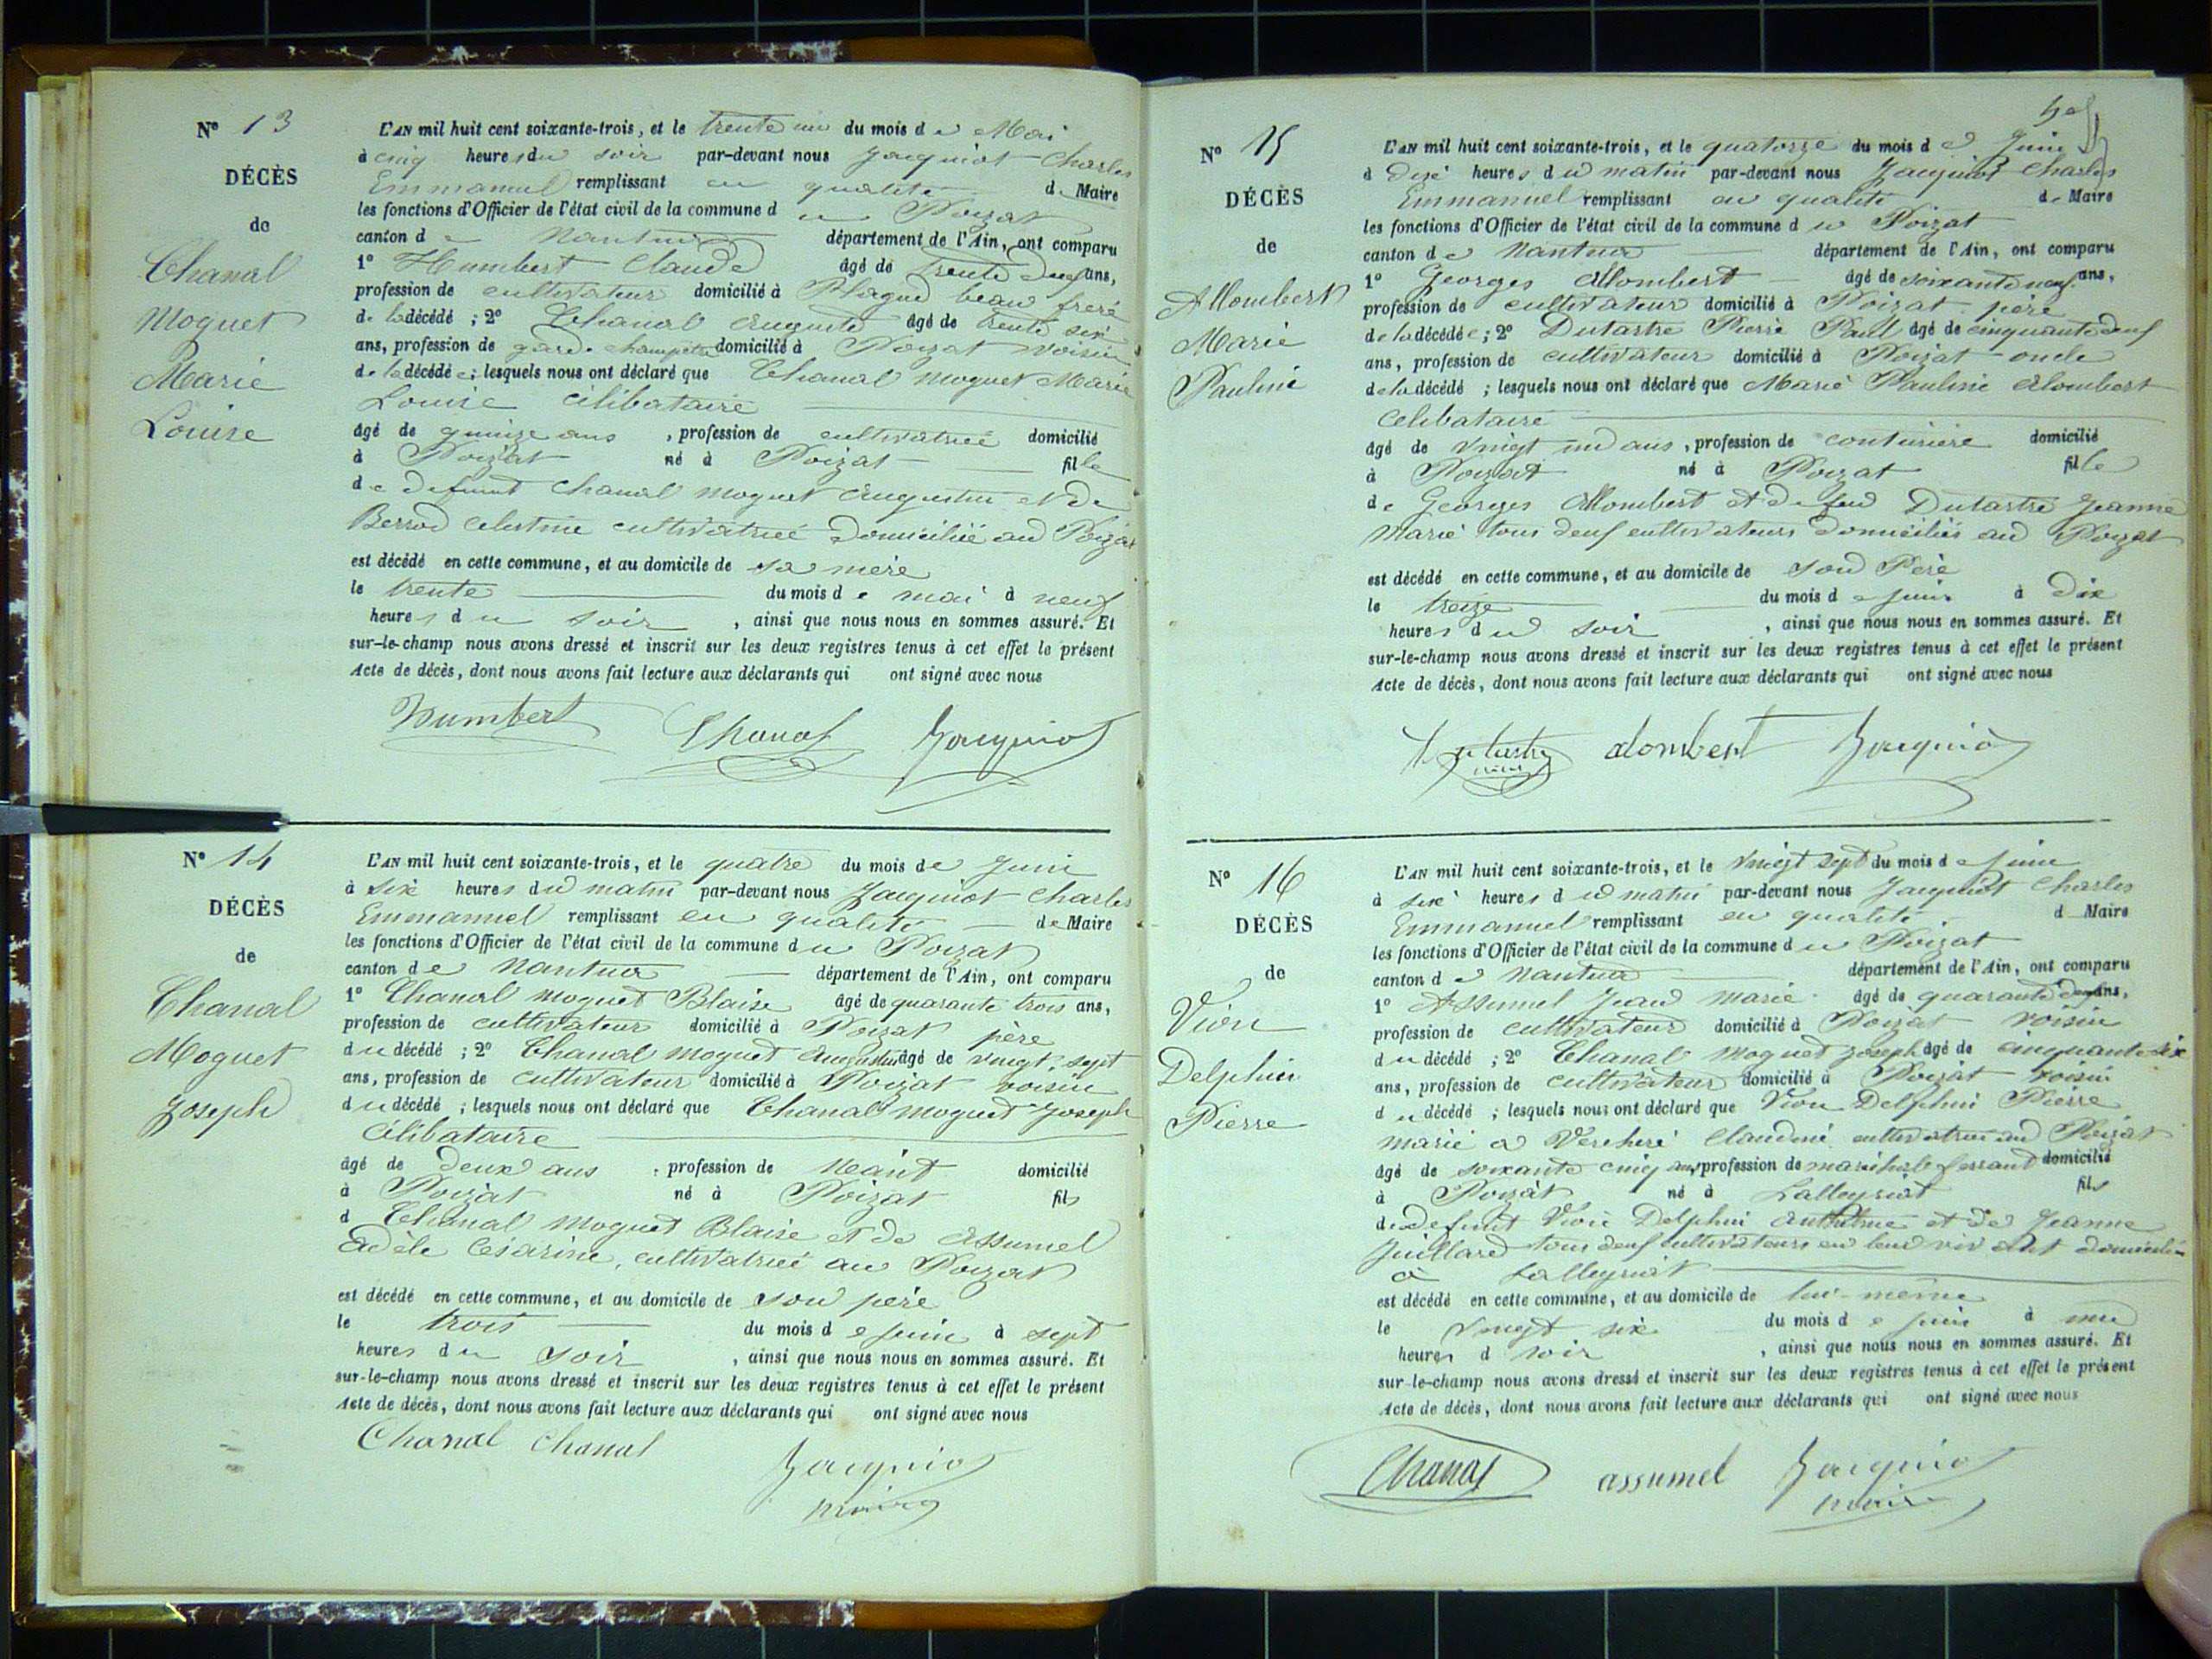 Nº 13
DÉCÈS
de
Chanal
Moguet
Marie
Louise
L'AN mil huit cent soixante-trois, et le trente un du mois de Mai
à cinq heures du soir par-devant nous Jacquiot Charles
Emmanuel remplissant en qualité de Maire
les fonctions d'Officier de l'état civil de la commune du Poizat
canton de Nantua département de l'Ain, ont comparu
1º Humbert Claude âgé de trente deux ans,
profession de cultivateur domicilié à Plagne beau frere
de la décédé ; 2º Chanal Auguste âgé de trente six
ans, profession de garde champetre domicilié à Poizat voisin
de la décédée ; lesquels nous ont déclaré que Chanal Moguet Marie
Louise célibataire
âgé de quinze ans , profession de cultivatrice domicilié
à Poizat né à Poizat fille
de defunt Chanal Moguet Augustin et de
Berrod Celestine cultivatrice domiciliée au Poizat
est décédé en cette commune, et au domicile de sa mère
le trente du mois de mai à neuf
heures du soir , ainsi que nous nous en sommes assuré. Et
sur-le-champ nous avons dressé et inscrit sur les deux registres tenus à cet effet le présent
Acte de décès, dont nous avons fait lecture aux déclarants qui ont signé avec nous
Humbert Chanal Jacquiot
Nº 14
DÉCÈS
de
Chanal
Moguet
Joseph
L'AN mil huit cent soixante-trois, et le quatre du mois de Juin
à six heures du matin par-devant nous Jacquiot Charles
Emmanuel remplissant en qualité de Maire
les fonctions d'Officier de l'état civil de la commune du Poizat
canton de Nantua département de l'Ain, ont comparu
1º Chanal Moguet Blaise âgé de quarante trois ans,
profession de cultivateur domicilié à Poizat père
du décédé ; 2º Chanal Moguet Augustin âgé de vingt sept
ans, profession de cultivateur domicilié à Poizat voisin
du décédé ; lesquels nous ont déclaré que Chanal Moguet Joseph
Célibataire
âgé de deux ans , profession de Néant domicilié
à Poizat né à Poizat fils
d Chanal Moguet Blaise et de Assumel
Adèle Césarine, cultivatrice au Poizat
est décédé en cette commune, et au domicile de son père
le trois du mois de Juin à sept
heures du soir , ainsi que nous nous en sommes assuré. Et
sur-le-champ nous avons dressé et inscrit sur les deux registres tenus à cet effet le présent
Acte de décès, dont nous avons fait lecture aux déclarants qui ont signé avec nous
Chanal Chanal Jacquiot
maire
Nº 15
DÉCÈS
de
Allombert
Marie
Pauline
L'AN mil huit cent soixante-trois, et le quatorze du mois de Juin
à dixe heures du matin par-devant nous Jacquiot Charles
Emmanuel remplissant en qualité de Maire
les fonctions d'Officier de l'état civil de la commune du Poizat
canton de Nantua département de l'Ain, ont comparu
1º Georges Allombert âgé de soixante neuf ans,
profession de cultivateur domicilié à Poizat père
de la décédée ; 2º Dutartre Pierre Paul âgé de cinquante deux
ans, profession de cultivateur domicilié à Poizat oncle
de la décédé ; lesquels nous ont déclaré que Marie Pauline Alombert
Celibataire
âgé de vingt un ans , profession de couturière domicilié
à Poizat né à Poizat fille
de Georges Allombert et de feu Dutartre Jeanne
Marie tous deux cultivateurs domiciliés au Poizat
est décédé en cette commune, et au domicile de son Père
le treize du mois de Juin à Dix
heures du soir , ainsi que nous nous en sommes assuré. Et
sur-le-champ nous avons dressé et inscrit sur les deux registres tenus à cet effet le présent
Acte de décès, dont nous avons fait lecture aux déclarants qui ont signé avec nous
Dutartre alombert Jacquiot
Nº 16
DÉCÈS
de
Vion
Delphin
Pierre
L'AN mil huit cent soixante-trois, et le vingt sept du mois de Juin
à six heures du matin par-devant nous Jacquiot Charles
Emmanuel remplissant en qualité d Maire
les fonctions d'Officier de l'état civil de la commune du Poizat
canton de Nantua département de l'Ain, ont comparu
1º Assumel Jean Marie âgé de quarante deux ans,
profession de cultivateur domicilié à Poizat voisin
du décédé ; 2º Chanal Moguet Joseph âgé de cinquante six
ans, profession de cultivateur domicilié à Poizat voisin
du décédé ; lesquels nous ont déclaré que Vion Delphin Pierre
marié a Verchere Claudine cultivatrice au Poizat
âgé de soixante cinq ans profession de maréchal ferrant domicilié
à Poizat né à Lalleyriat fils
de defunt Vion Delphin Anthelme et de Jeanne
Juillard tous deux cultivateurs en leur vivant domiciliés
à Lalleyriat
est décédé en cette commune, et au domicile de lui-même
le vingt six du mois de Juin à une
heures d soir , ainsi que nous nous en sommes assuré. Et
sur-le-champ nous avons dressé et inscrit sur les deux registres tenus à cet effet le présent
Acte de décès, dont nous avons fait lecture aux déclarants qui ont signé avec nous
Chanal assumel Jacquiot
maire